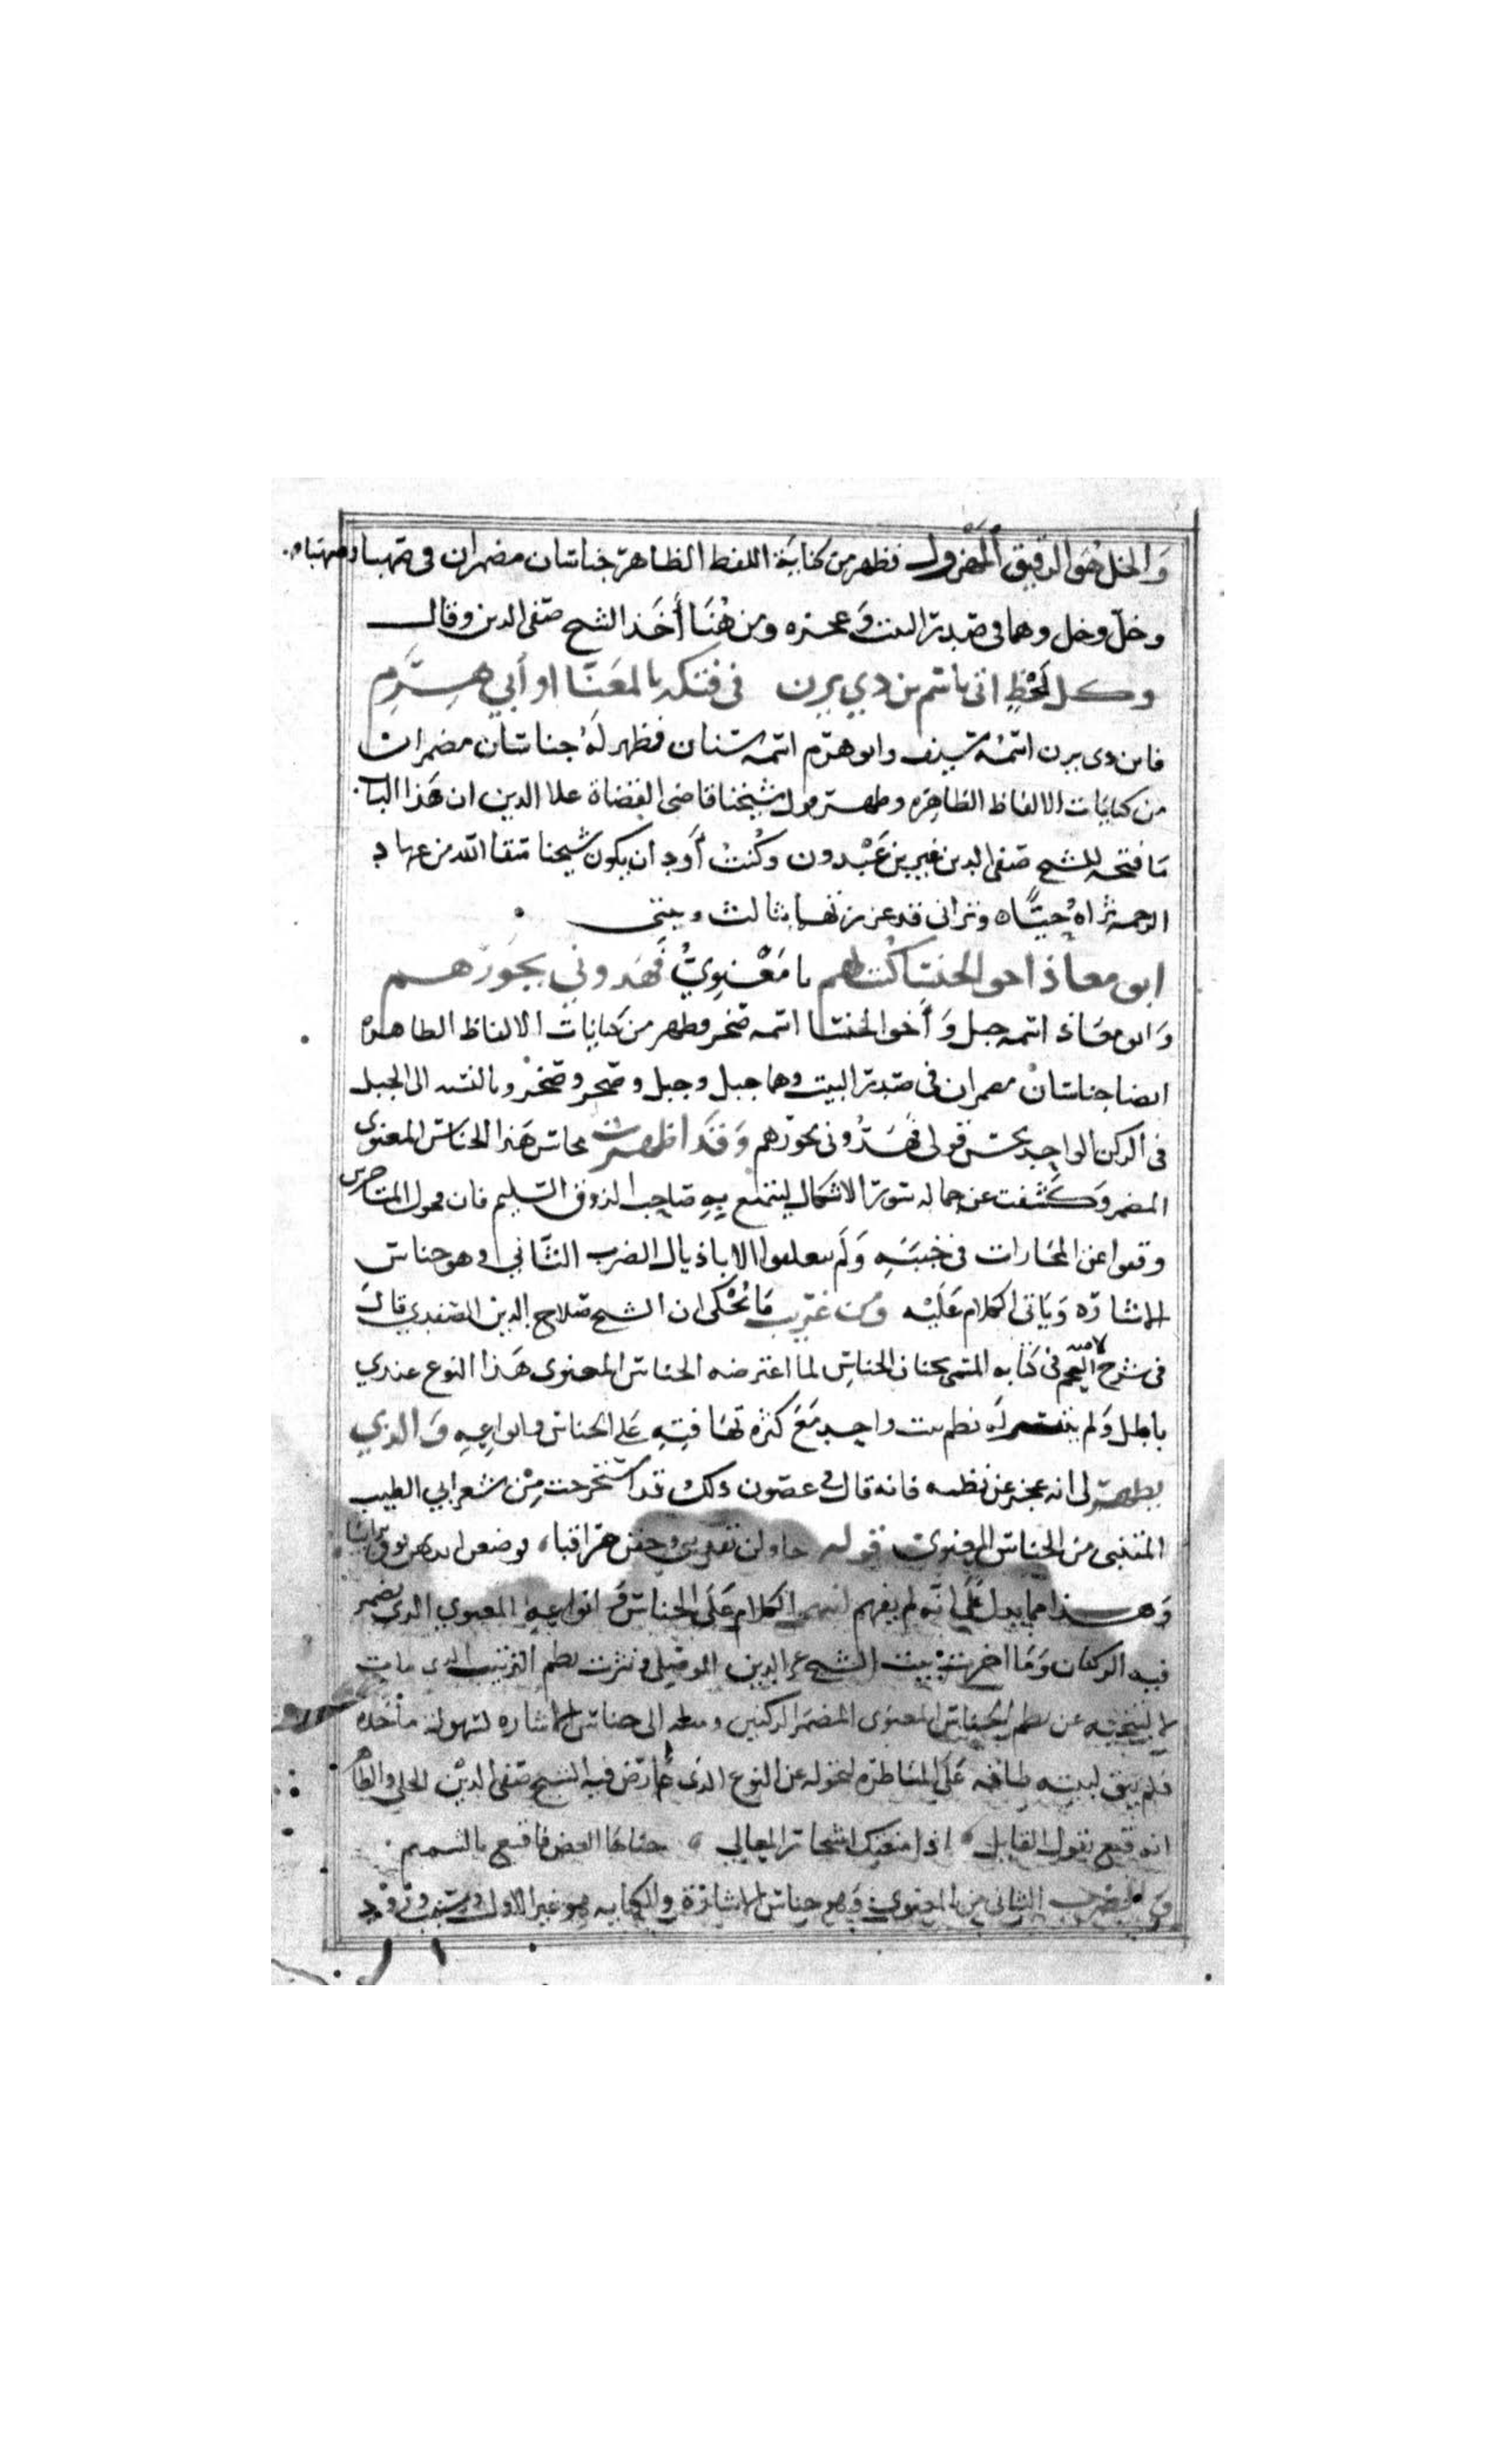 وَالخل هُوَ الدقيق المهزول فظهر من كناية اللفظ الظاهر جناسان مضمران في صهبا وصهباء
وخل وخل وهما في صدر البيت وعجزه ومن هُنَا أَخَذ الشيخ صفي الدين وقال
وكل لَحْظٍ اتى باسم بن ذي يزن في فتكه بالمعَنَّا او أبي هَرِم
فابن ذى يزن اسمُه سيف وابو هرم اسمه سنان فظهر لَهُ جناسان مضمران
من كنايات الالفاظ الظاهره وظهر من قول شيخنا قاضى القضاة علا الدين ان هَذا الباب
مَا فتحه للشيخ صفى الدين غير بن عَبْدون وكُنتُ أَود ان يكون شيخنا سقا الله من عهاد
الرحمة ثراهُ حيًّا ويرانى قد عززتهما بثالث وبيتى
ابو معاذ اخو الخنسا كُنت لهم يا مَعْنوِيُّ فَهَدوني بجَوْرهم
وَابو معَاذ اسمه جبل وَأَخو الخنسا اسمه صخر فظهر من كنايات الالفاظ الظاهره
ايضا جناسان مضمران في صدر البيت وهما جبل وجبل وصخر وصخر وبالنسبه الى الجبل
فى الركن الواحد يحسن قولى فَهَدُّونى بجورهم وَقَد اظهرت محاسن هَذا الجناس المعنوى
المضمر وَكشفت عن جماله ستور الاشكال ليتمتع بِهِ صَاحب الذوق السليم فان فحول المتاخرين
وقفوا عن المجارات فى حَلبَتِهِ وَلَم يتعلقوا الا باذيال الضرب الثَّاني وهو جناس
الاشارَه وَيَاتى الكلام عَلَيْه وَمن غريب مَا يُحْكى ان الشيخ صَلاح الدين الصفدي قال
فى شرح لامية العجم فى كتابه المسمى بجنان الجناس لما اعترضه الجناس المعنوى هَذا النوع عندي
باطل وَلم يتيسر لَه نظم بيت واحد مَعَ كثرة تهَافتِهِ عَلى الجناس وانواعِهِ وَالذي
يظهر لى انه عجز عن نظمه فانه قال في غصون ذلك قد استخرجت مِنْ شعر ابي الطيب
المتنبى من الجناس المعنوى قوله حاولن تفديتى وخفن مراقبا، فوضعن ايديهن فوق ترائبا
وَهذا مما يدل عَلَى انه لم يفهم الكلام عَلَى الجناس وَانواعِهِ المعنوي الذي يضمر
فيه الركنان وَمَا اخرت بيت الشيخ عز الدين الموصلي ونثرت نظم الترتيب الذى مات
لا لنحيبه عن نظم الجناس المعنوى المضمر الركنين وميله الى جناس الاشاره لسهولة مأخذه
فلم يبق لبيته طاقه عَلَى المناظره لتحوله عن النوع الذى عَارض فيه الشيخ صفى الديْن الحلي والظاهر
انه قنع بقول القايل اذا منعتك اشجار المعالي جناها الغض فاقنع بالشميم
وَالضرب الثانى من المعنوى وَهو جناس الاشارَة والكنايه هو غير الاول وسبب ورود